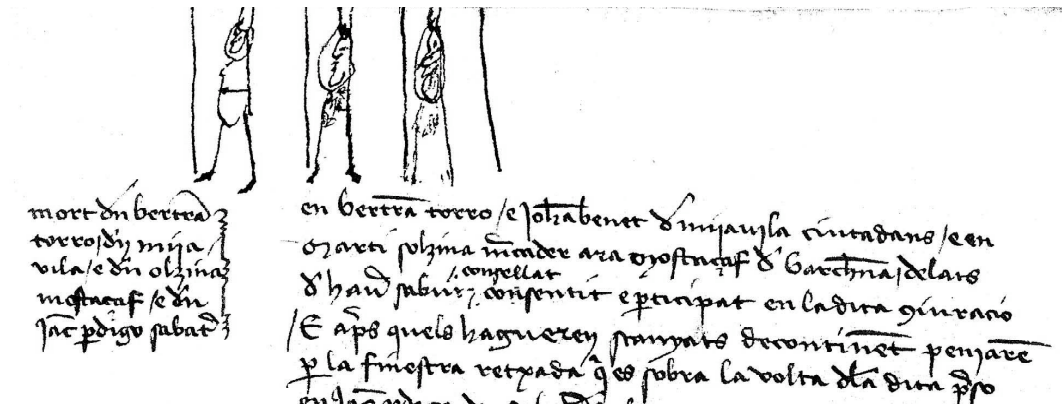 mort dn bertra
torro / dn mija
vila / e dn olzina
mostaçaf / e dn
Jac pdigo sabat
en bertra torro / e Joha benet d mijavila ciutadans / e en
marti solzina mcader ara mostaçaf d Barchna / delats
d hav sabut consellat consentit e pticipat en la dita 9iuracio
/ E aps quels hagueren scanyats decontinent penjaren
p la finestra retxada q es sobra la volta dla dita pso
en Jac pdigo